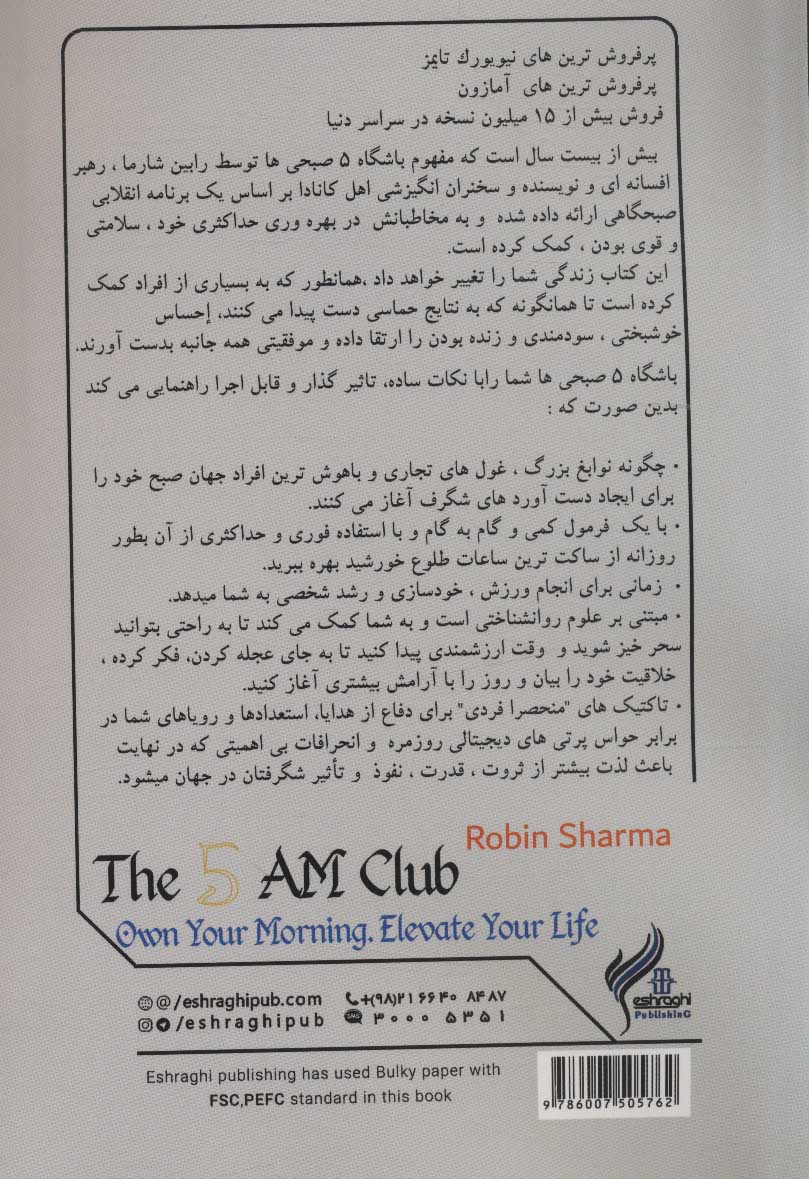 پرفروش ترین های نیویورك تایمز
پرفروش ترین های آمازون
فروش بیش از ۱۵ میلیون نسخه در سراسر دنیا
بیش از بیست سال است که مفهوم باشگاه ۵ صبحی ها توسط رابین شارما ، رهبر
افسانه ای و نویسنده و سخنران انگیزشی اهل کانادا بر اساس یک برنامه انقلابی
صبحگاهی ارائه داده شده و به مخاطبانش در بهره وری حداکثری خود ، سلامتی
و قوی بودن ، کمک کرده است.
این کتاب زندگی شما را تغییر خواهد داد ،همانطور که به بسیاری از افراد کمک
کرده است تا همانگونه که به نتایج حماسی دست پیدا می کنند، إحساس
خوشبختی ، سودمندی و زنده بودن را ارتقا داده و موفقیتی همه جانبه بدست آورند.
باشگاه ۵ صبحی ها شما رابا نکات ساده، تاثیر گذار و قابل اجرا راهنمایی می کند
بدین صورت که :
• چگونه نوابغ بزرگ ، غول های تجاری و باهوش ترین افراد جهان صبح خود را
برای ایجاد دست آورد های شگرف آغاز می کنند.
• با یک فرمول کمی و گام به گام و با استفاده فوری و حداکثری از آن بطور
روزانه از ساکت ترین ساعات طلوع خورشید بهره ببرید.
• زمانی برای انجام ورزش ، خودسازی و رشد شخصی به شما میدهد.
• مبتنی بر علوم روانشناختی است و به شما کمک می کند تا به راحتی بتوانید
سحر خیز شوید و وقت ارزشمندی پیدا کنید تا به جای عجله کردن، فکر کرده ،
خلاقیت خود را بیان و روز را با آرامش بیشتری آغاز کنید.
• تاکتیک های "منحصرا فردی" برای دفاع از هدایا، استعدادها و رویاهای شما در
برابر حواس پرتی های دیجیتالی روزمره و انحرافات بی اهمیتی که در نهایت
باعث لذت بیشتر از ثروت ، قدرت ، نفوذ و تأثیر شگرفتان در جهان میشود.
Robin Sharma
The 5 AM Club
Own Your Morning. Elevate Your Life
@/eshraghipub.com +(۹۸)۲۱ ۶۶ ۴۰ ۸۴ ۸۷
/eshraghipub SMS ۳۰۰۰ ۵۳۵۱
eshraghi
PublishinG
Eshraghi publishing has used Bulky paper with
FSC,PEFC standard in this book
9 786007 505762